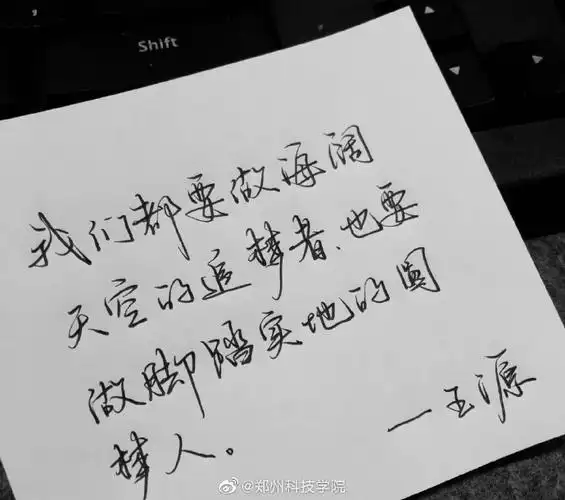 Shift
我们都要做海阔
天空的追梦者、也要
做脚踏实地的圆
梦人。
一王源
@郑州科技学院